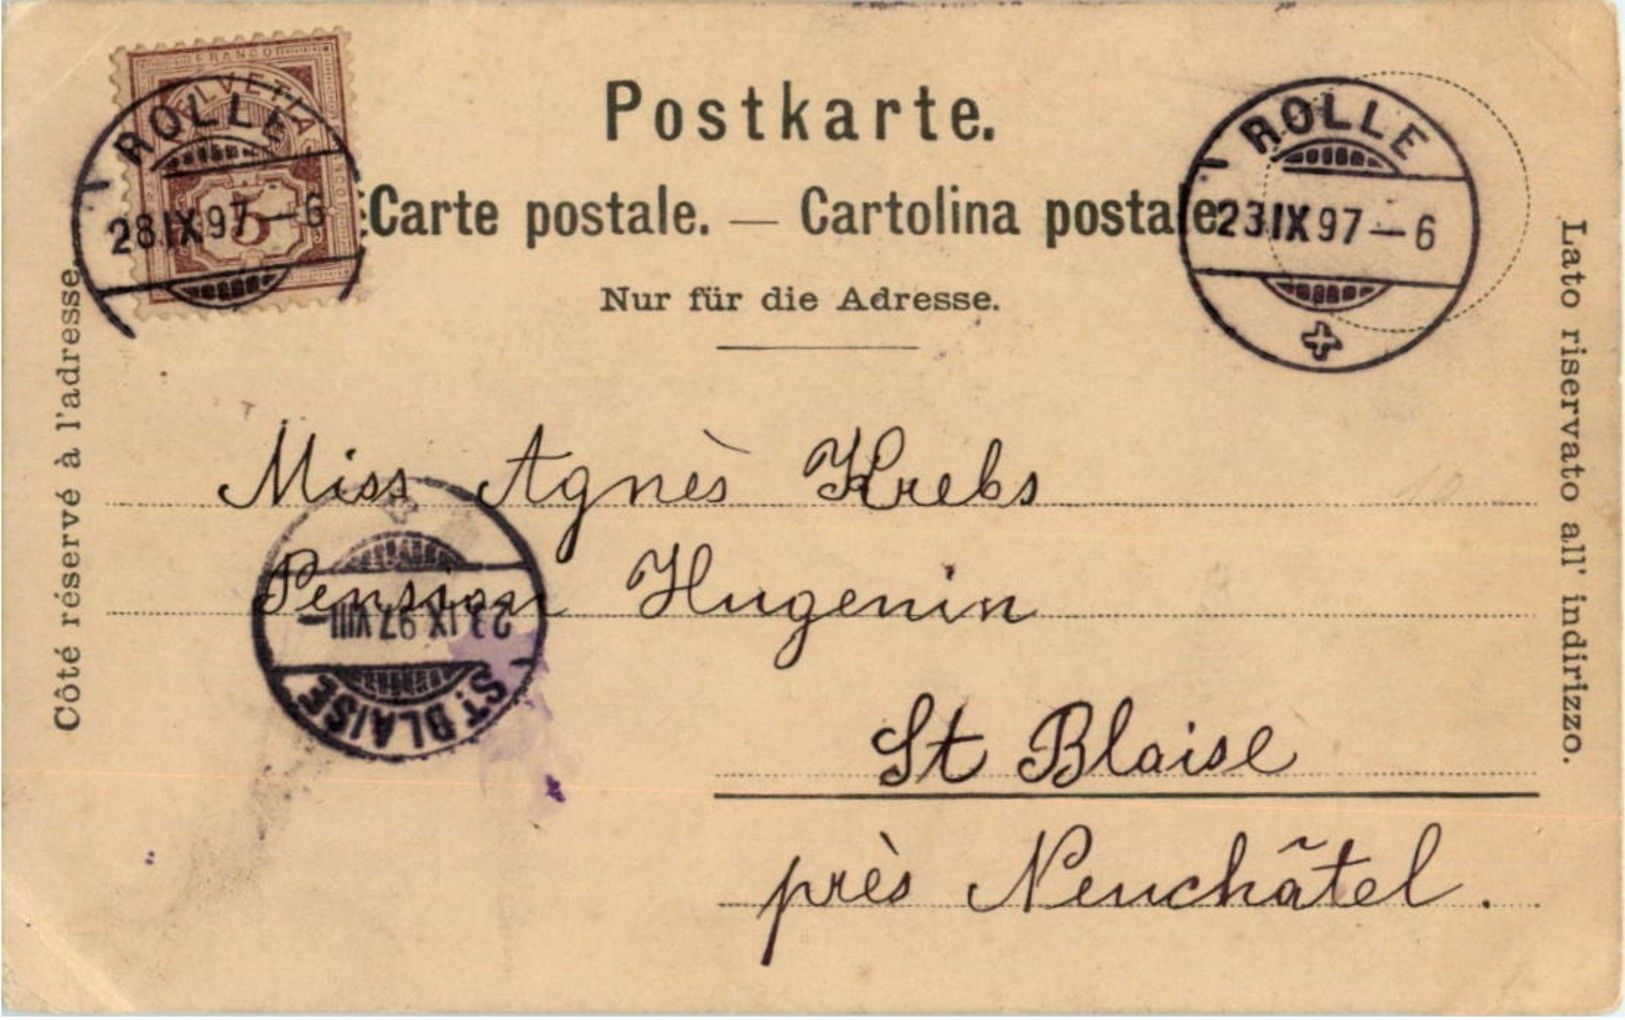 FRANCO
HELVETIA
FRANCO
5
ROLLE
28 IX 97 – 6
Postkarte.
Carte postale. — Cartolina postale
Nur für die Adresse.
ROLLE
23 IX 97 – 6
Côté réservé à l'adresse.
Lato riservato all' indirizzo.
Miss Agnès Krebs
Pension Hugenin
St Blaise
près Neuchâtel.
23 IX 97 VIII –
ST. BLAISE